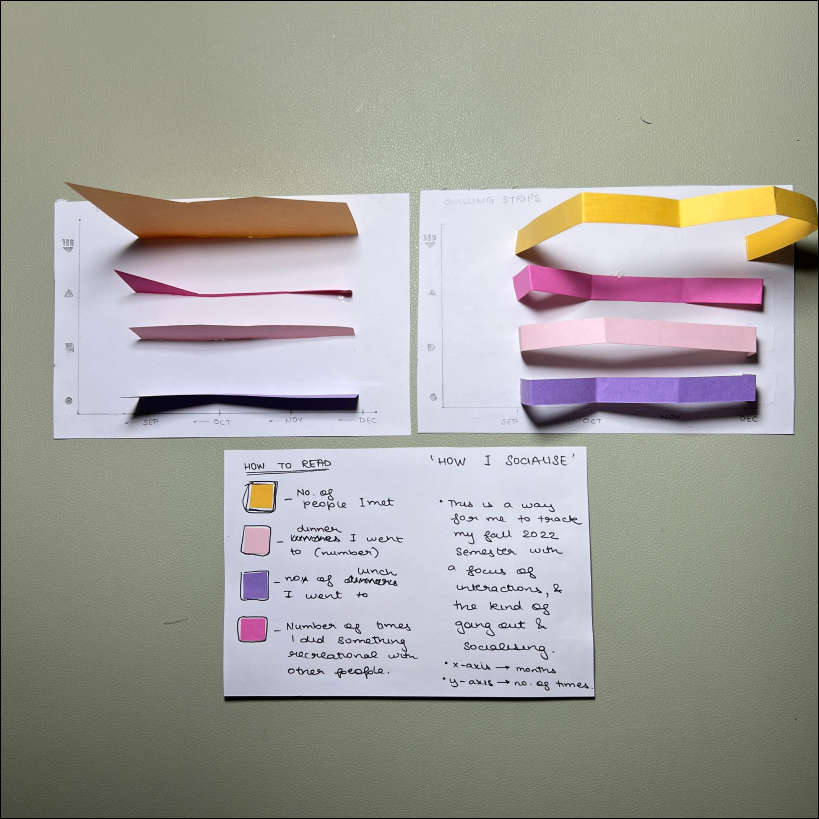 SEP
OCT
NOV
DEC
QUILLING STRIPS
SEP
OCT
NOV
DEC
HOW TO READ
- No. of
people I met
dinner
- I went
to (number)
lunch
- nos of dinners
I went to
- Number of times
I did something
recreational with
other people.
'HOW I SOCIALISE'
• This is a way
for me to track
my fall 2022
semester with
a focus of
interactions, &
the kind of
going out &
socialising.
• x-axis → months
• y-axis → no. of times.